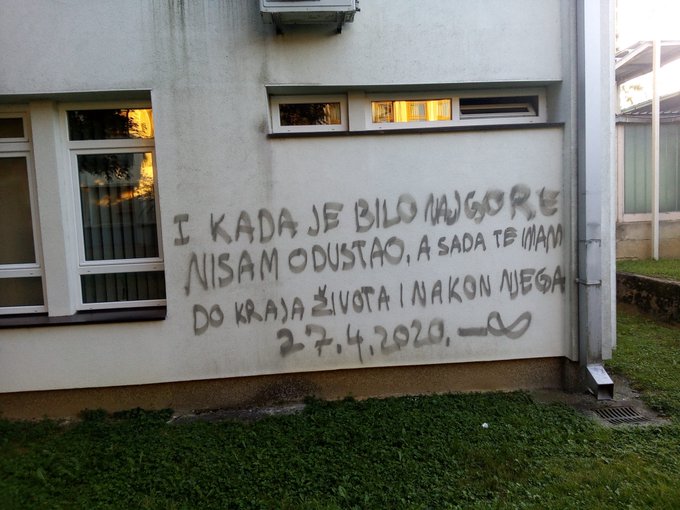 I KADA JE BILO NAJGORE
NISAM ODUSTAO, A SADA TE IMAM
DO KRAJA ŽIVOTA I NAKON NJEGA
27.4.2020. – ∞